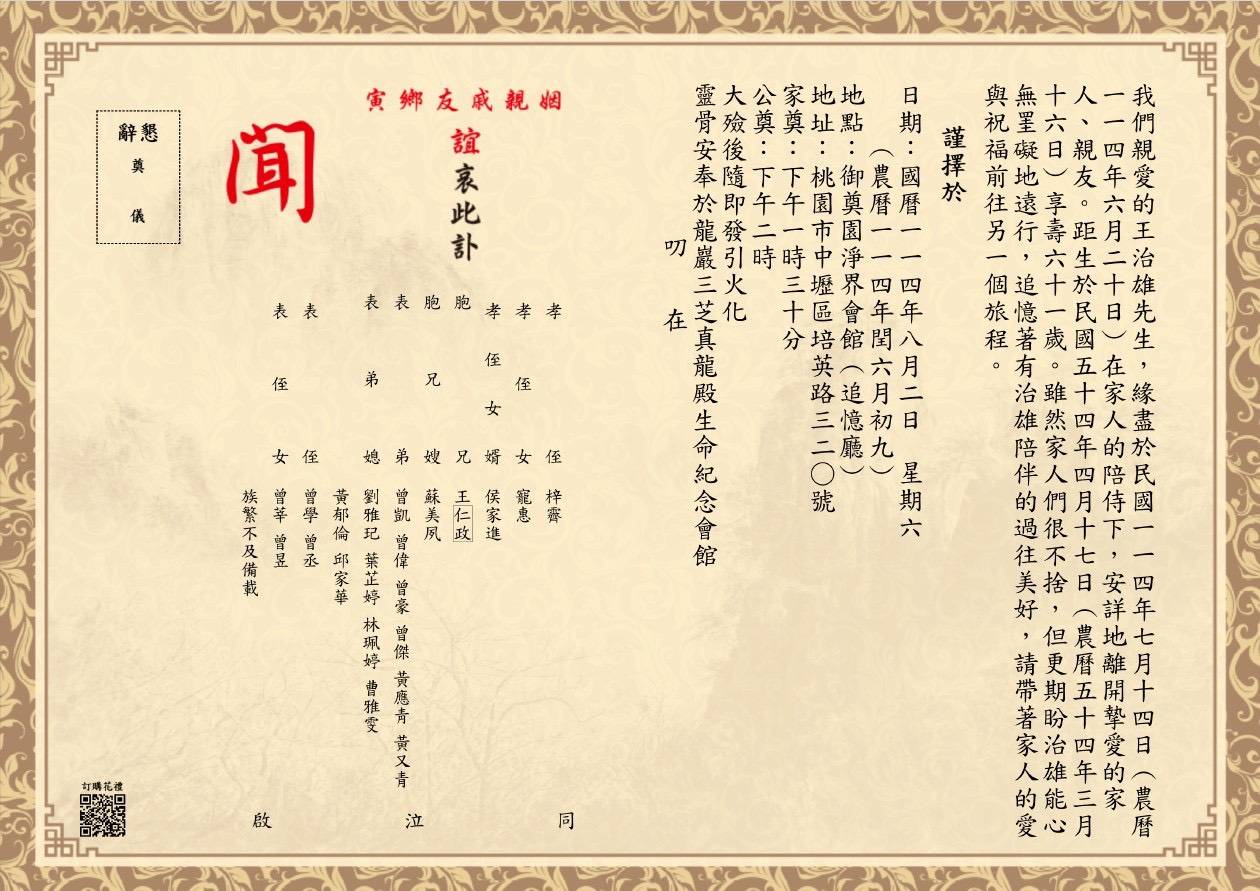 我們親愛的王治雄先生，緣盡於民國一一四年七月十四日（農曆
一一四年六月二十日）在家人的陪侍下，安詳地離開摯愛的家
人、親友。距生於民國五十四年四月十七日（農曆五十四年三月
十六日）享壽六十一歲。雖然家人們很不捨，但更期盼治雄能心
無罣礙地遠行，追憶著有治雄陪伴的過往美好，請帶著家人的愛
與祝福前往另一個旅程。
謹擇於
日期：國曆一一四年八月二日 星期六
（農曆一一四年閏六月初九）
地點：御奠園淨界會館（追憶廳）
地址：桃園市中壢區培英路三二〇號
家奠：下午一時三十分
公奠：下午二時
大殮後隨即發引火化
靈骨安奉於龍巖三芝真龍殿生命紀念會館
叨在
姻親戚友鄉寅
誼哀此訃
聞
孝侄 梓霽
孝侄女 寵惠
孝侄女婿 侯家進
胞兄 王仁政
胞兄嫂 蘇美夙
表弟 曾凱 曾偉 曾豪 曾傑 黃應青 黃又青
表弟媳 劉雅玘 葉芷婷 林珮婷 曹雅雯
黃郁倫 邱家華
表侄 曾學 曾丞
表侄女 曾莘 曾昱
族繁不及備載
同泣啟
懇辭
奠儀
訂購花禮